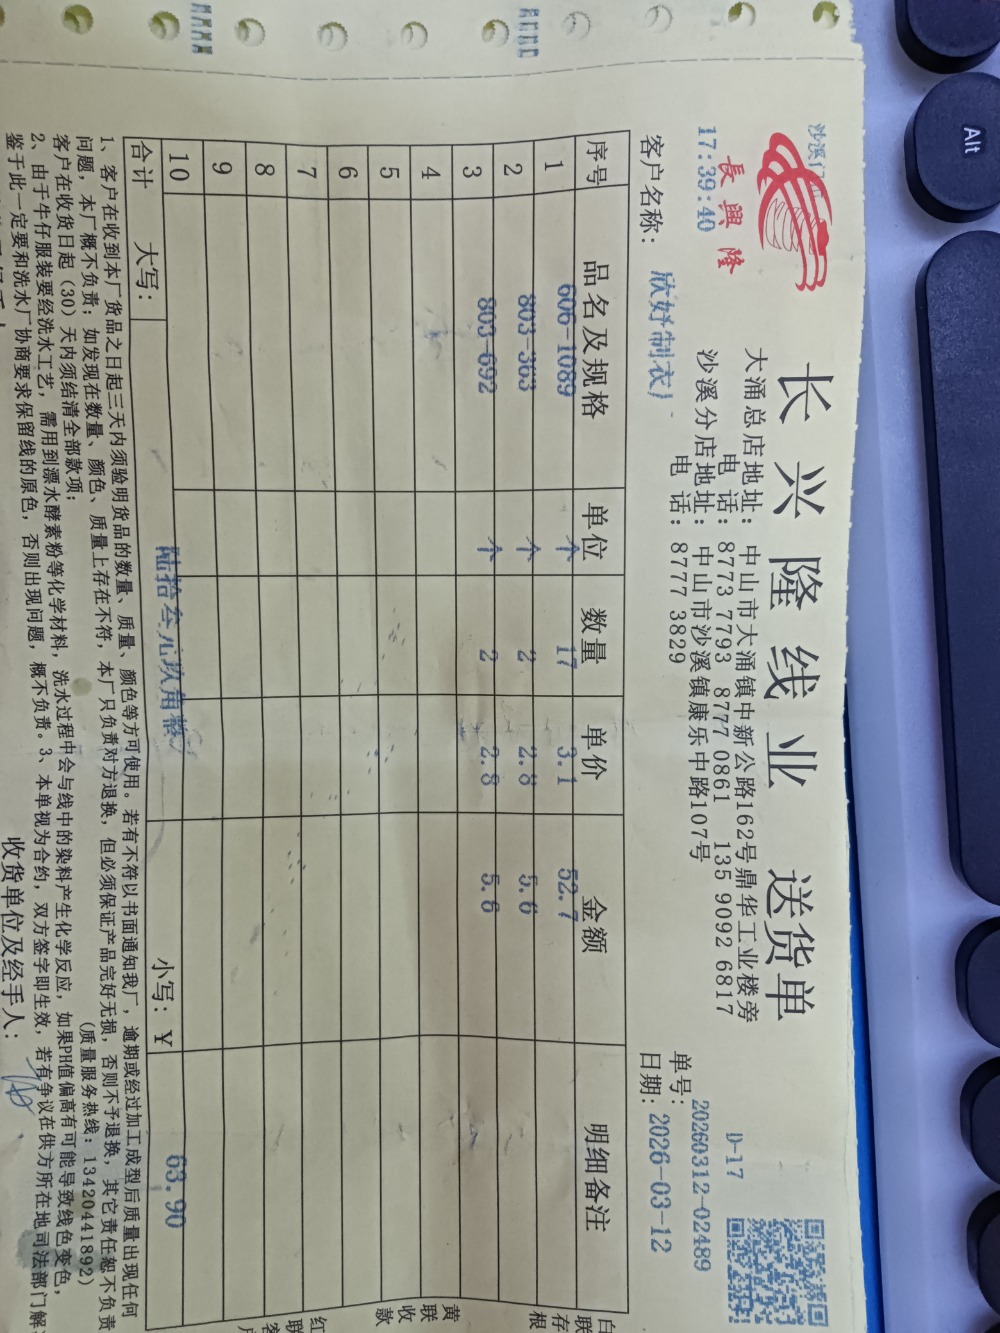 長興隆
17:39:40
长兴隆线业 送货单
大涌总店地址: 中山市大涌镇中新公路162号鼎华工业楼旁
电 话: 8773 7793 8777 0861 135 9092 6817
沙溪分店地址: 中山市沙溪镇康乐中路107号
电 话: 8777 3829
D-17
单号: 20260312-02489
客户名称: 欣妤制衣厂
日期: 2026-03-12
序号 品名及规格 单位 数量 单价 金额 明细备注
1 606-1089 个 17 3.1 52.7
2 803-363 个 2 2.8 5.6
3 803-692 个 2 2.8 5.6
4
5
6
7
8
9
10
合计 大写: 陆拾叁元玖角整 小写: ¥ 63.90
1、客户在收到本厂货品之日起三天内须验明货品的数量、质量、颜色等方可使用。若有不符以书面通知我厂,逾期或经过加工成型后质量出现任何
问题,本厂概不负责;如发现在数量、颜色、质量上存在不符,本厂只负责对方退换,但必须保证产品完好无损,否则不予退换,其它责任恕不负责
客户在收货日起(30)天内须结清全部款项; (质量服务热线:13420441892)
2、由于牛仔服装要经洗水工艺,需用到漂水酵素粉等化学材料,洗水过程中会与线中的染料产生化学反应,如果PH值偏高有可能导致线色变色,
鉴于此一定要和洗水厂协商要求保留线的原色,否则出现问题,概不负责。3、本单视为合约,双方签字即生效,若有争议在供方所在地司法部门解
收货单位及经手人:
白联存根
黄联收款
红联客户
Alt